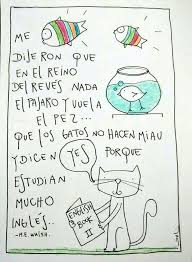 ME
DIJERON QUE
EN EL REINO
DEL REVÉS NADA
EL PÁJARO Y VUELA
EL PEZ...
QUE LOS GATOS NO HACEN MIAU
Y DICEN YES PORQUE
ESTUDIAN
MUCHO
INGLÉS..
-M.E. WALSH.-
ENGLISH
BOOK
II